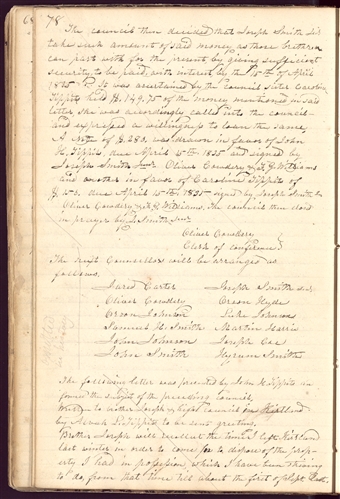 78
The council then decided that Joseph Smith Jr.
take such amount of said money as those brethren
can part with for the present, by giving sufficient
security to be paid, with interest by the 15th of April
1835. It was ascertained by the council Sister Caroline
Tippits held $149.75 of the money mentioned in said
letter she was accordingly called into the council
and expresses a willingness to loan the same.
A Note of $280. was drawn in favor of John
H. Tippits due April 15th 1835 and signed by
Joseph Smith Junr. Oliver Cowdery & F. G. Williams
and another in favor of Caroline Tippits of
$150. due April 15th 1835 signed by Joseph Smith Jr.
Oliver Cowdery & F. G. Williams. The council then closed
in prayer by J. Smith Junr.
Oliver Cowdery
Clerk of conference
The next Councellors will be arranged as
follows.
Jared Carter Joseph Smith sen.
Oliver Cowdery Orson Hyde
Orson Johnson Luke Johnson
Samuel H. Smith Martin Harris
John Johnson Joseph Coe
John Smith Hyrum Smith
The following letter was presented by John H. Tippits and
found the subject of the preceding Council,
brother Joseph & high council in Kirtland
by Alvah L. Tippits to be sent greeting.
Brother Joseph will recollect the time I left Kirtland
last winter in order to come for to dispose of the prop-
erty I had in possession, which I have been striving
to do, from that time till about the first of Sept. last.